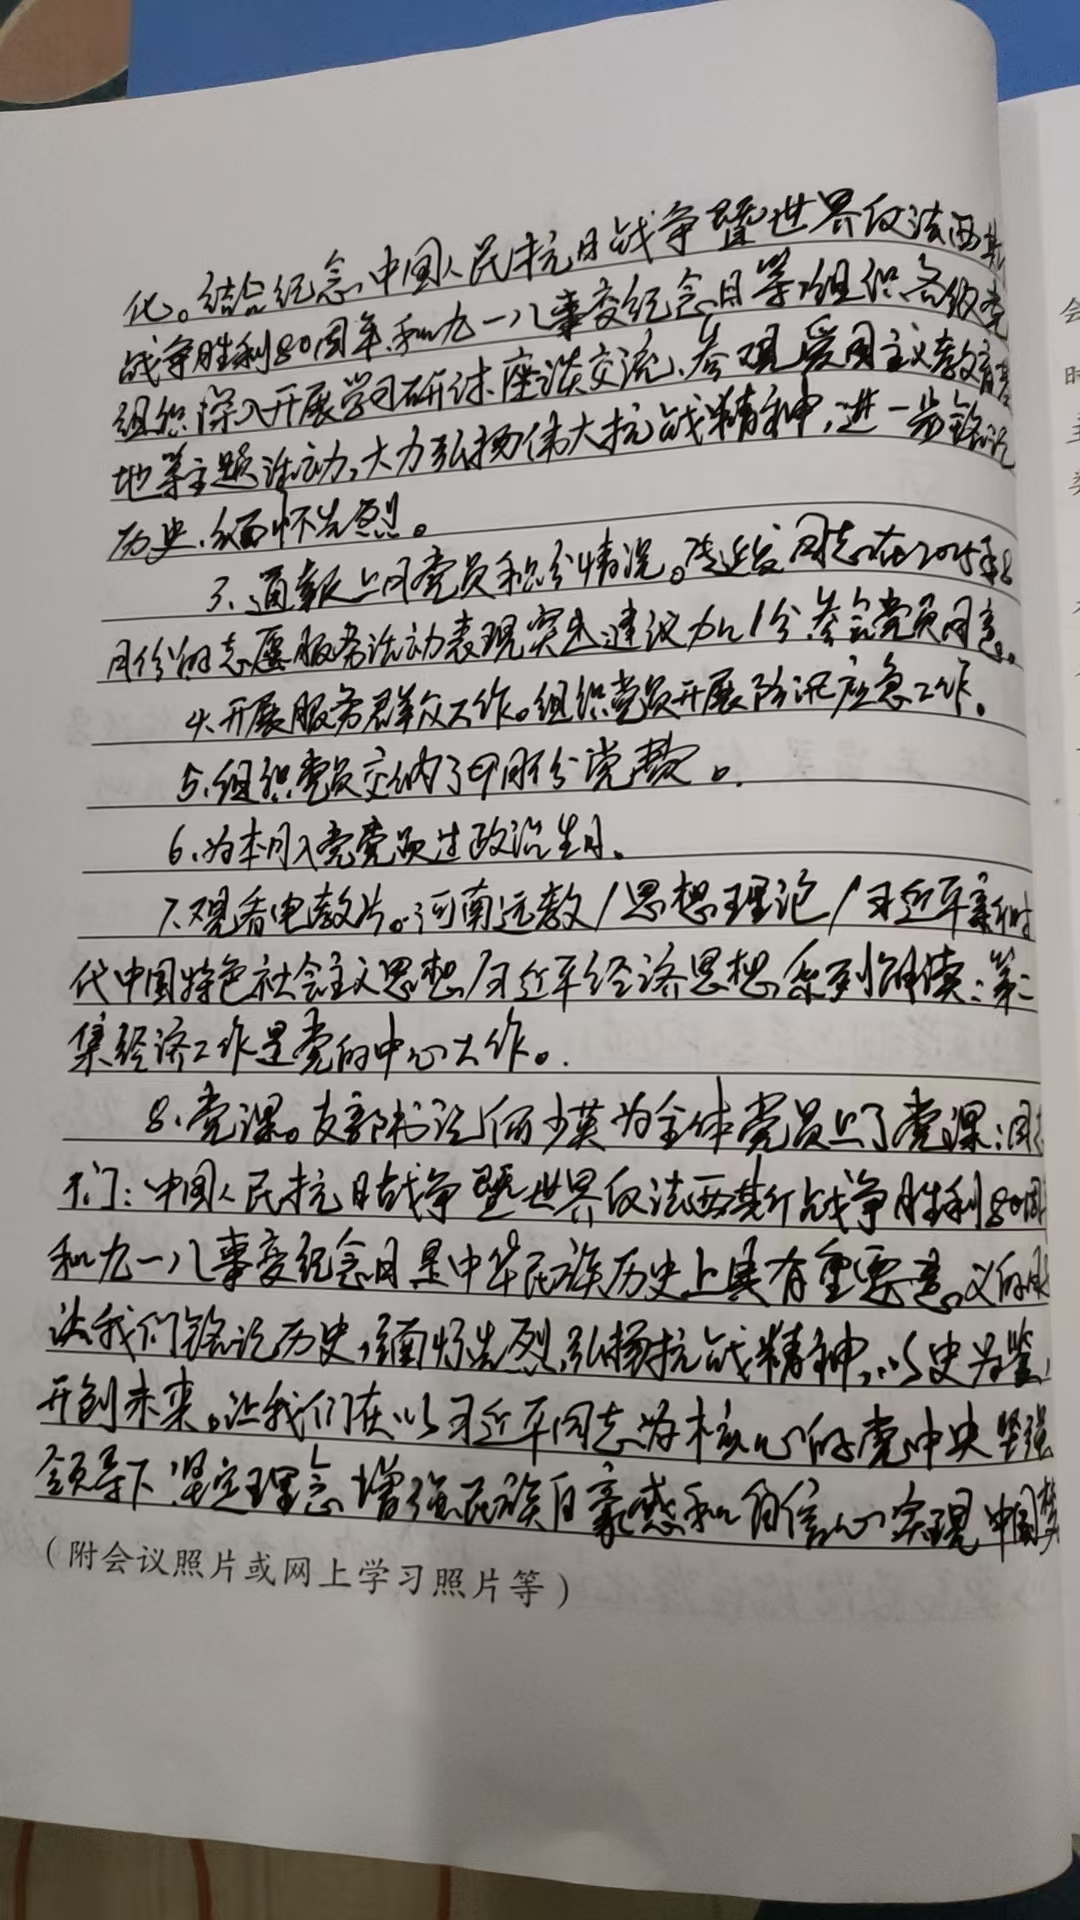 化。结合纪念中国人民抗日战争暨世界反法西斯
战争胜利80周年和九一八事变纪念日等,组织各级党
组织深入开展学习研讨、座谈交流、参观爱国主义教育基
地等主题活动,大力弘扬伟大抗战精神,进一步铭记
历史、缅怀先烈。
3、通报上月党员积分情况。同志在2025年8
月份的志愿服务活动表现突出,建议加1分,参会党员同意。
4、开展服务群众工作。组织党员开展防汛应急工作。
5、组织党员交纳了9月份党费。
6、为本月入党党员过政治生日。
7、观看电教片。河南远教/思想理论/习近平新时
代中国特色社会主义思想/习近平经济思想系列解读:第二
集经济工作是党的中心工作。
8、党课。支部书记何少英为全体党员上了党课:同志
们:中国人民抗日战争暨世界反法西斯战争胜利80周
和九一八事变纪念日是中华民族历史上具有重要意义的
让我们铭记历史,缅怀先烈,弘扬抗战精神,以史为鉴,
开创未来。让我们在以习近平同志为核心的党中央坚强
领导下,坚定理念,增强民族自豪感和自信心,实现中国梦
(附会议照片或网上学习照片等)